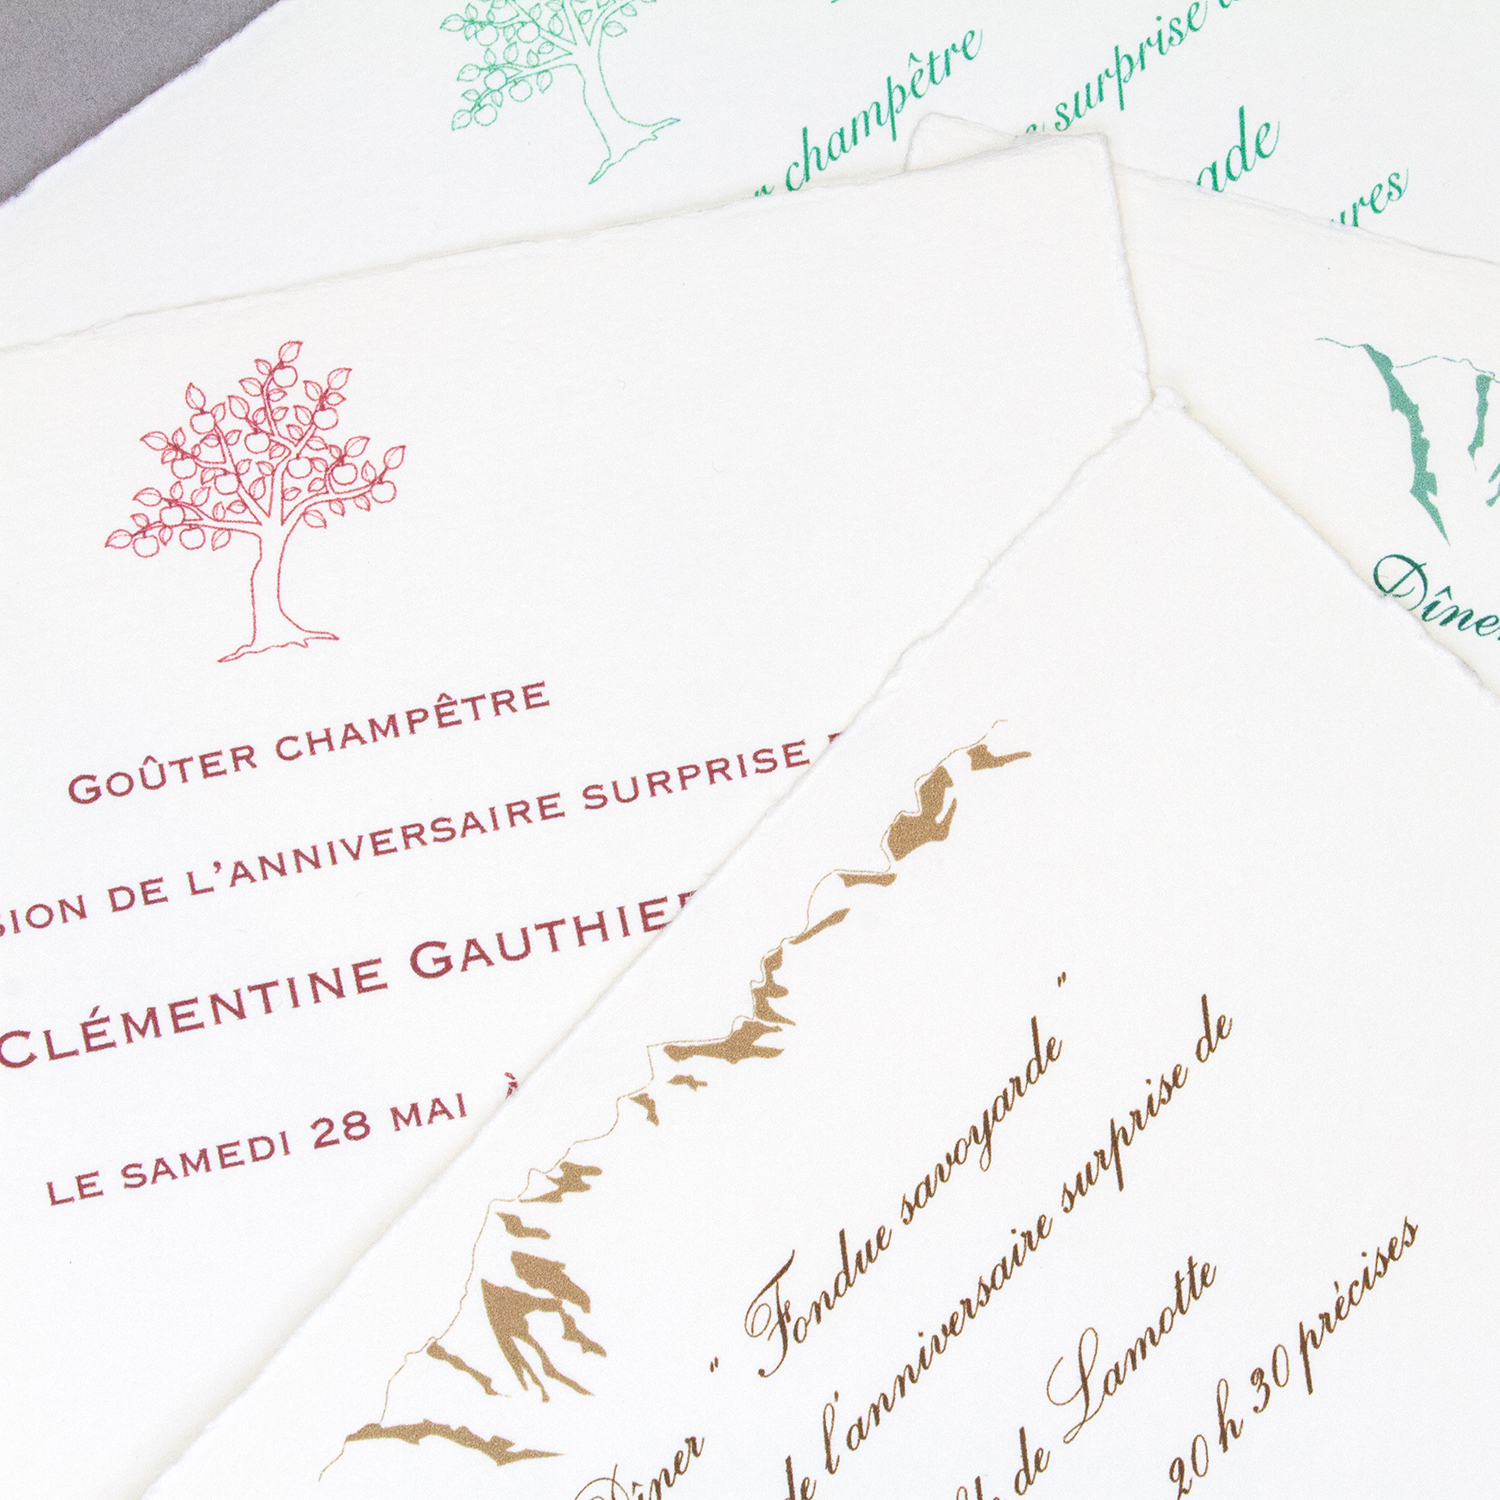 champêtre
surprise
Goûter champêtre
de l'anniversaire surprise
Clémentine Gauthier
le samedi 28 mai à
Dîner
Dîner " Fondue savoyarde "
de l'anniversaire surprise de
de Lamotte
20 h 30 précises